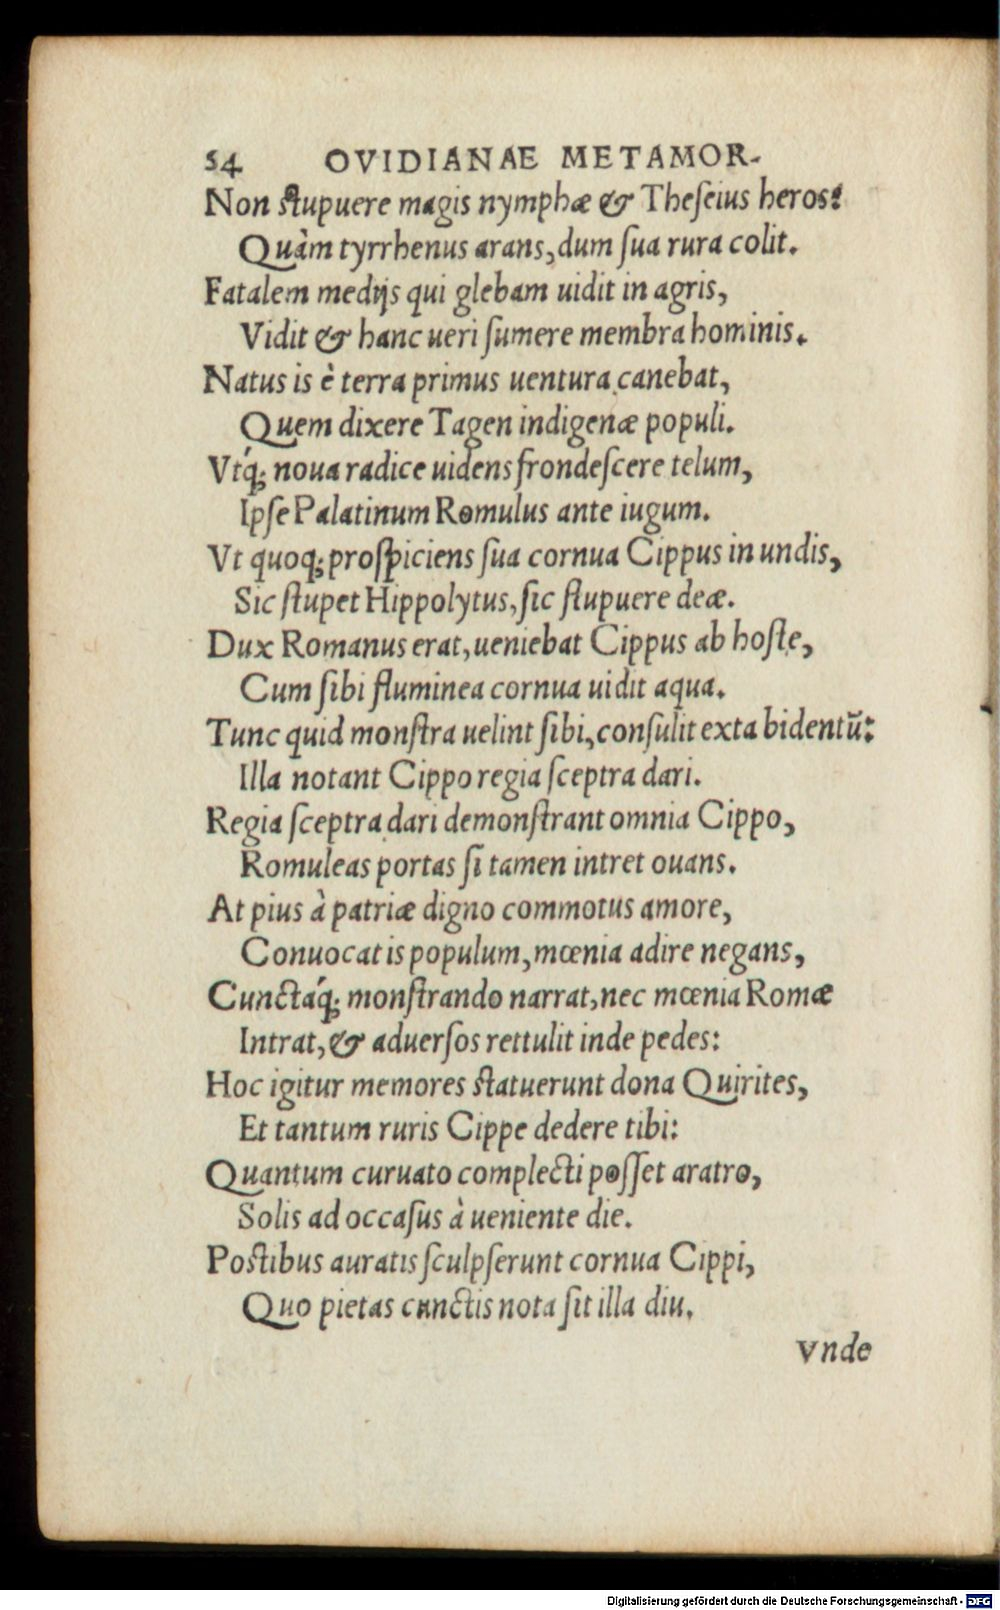 54 OVIDIANAE METAMOR-
Non ſtupuere magis nymphæ & Theſeius heros:
Quàm tyrrhenus arans, dum ſua rura colit.
Fatalem medijs qui glebam uidit in agris,
Vidit & hanc ueri ſumere membra hominis.
Natus is è terra primus uentura canebat,
Quem dixere Tagen indigenæ populi.
Vtq́; noua radice uidens frondeſcere telum,
Ipſe Palatinum Romulus ante iugum.
Vt quoq; proſpiciens ſua cornua Cippus in undis,
Sic ſtupet Hippolytus, ſic ſtupuere deæ.
Dux Romanus erat, ueniebat Cippus ab hoſte,
Cum ſibi fluminea cornua uidit aqua.
Tunc quid monſtra uelint ſibi, conſulit exta bidentū:
Illa notant Cippo regia ſceptra dari.
Regia ſceptra dari demonſtrant omnia Cippo,
Romuleas portas ſi tamen intret ouans.
At pius à patriæ digno commotus amore,
Conuocat is populum, mœnia adire negans,
Cunctaq́; monſtrando narrat, nec mœnia Romæ
Intrat, & aduerſos rettulit inde pedes:
Hoc igitur memores ſtatuerunt dona Quirites,
Et tantum ruris Cippe dedere tibi:
Quantum curuato complecti poſſet aratro,
Solis ad occaſus à ueniente die.
Poſtibus auratis ſculpſerunt cornua Cippi,
Quo pietas cunctis nota ſit illa diu.
Vnde
Digitalisierung gefördert durch die Deutsche Forschungsgemeinschaft - DFG